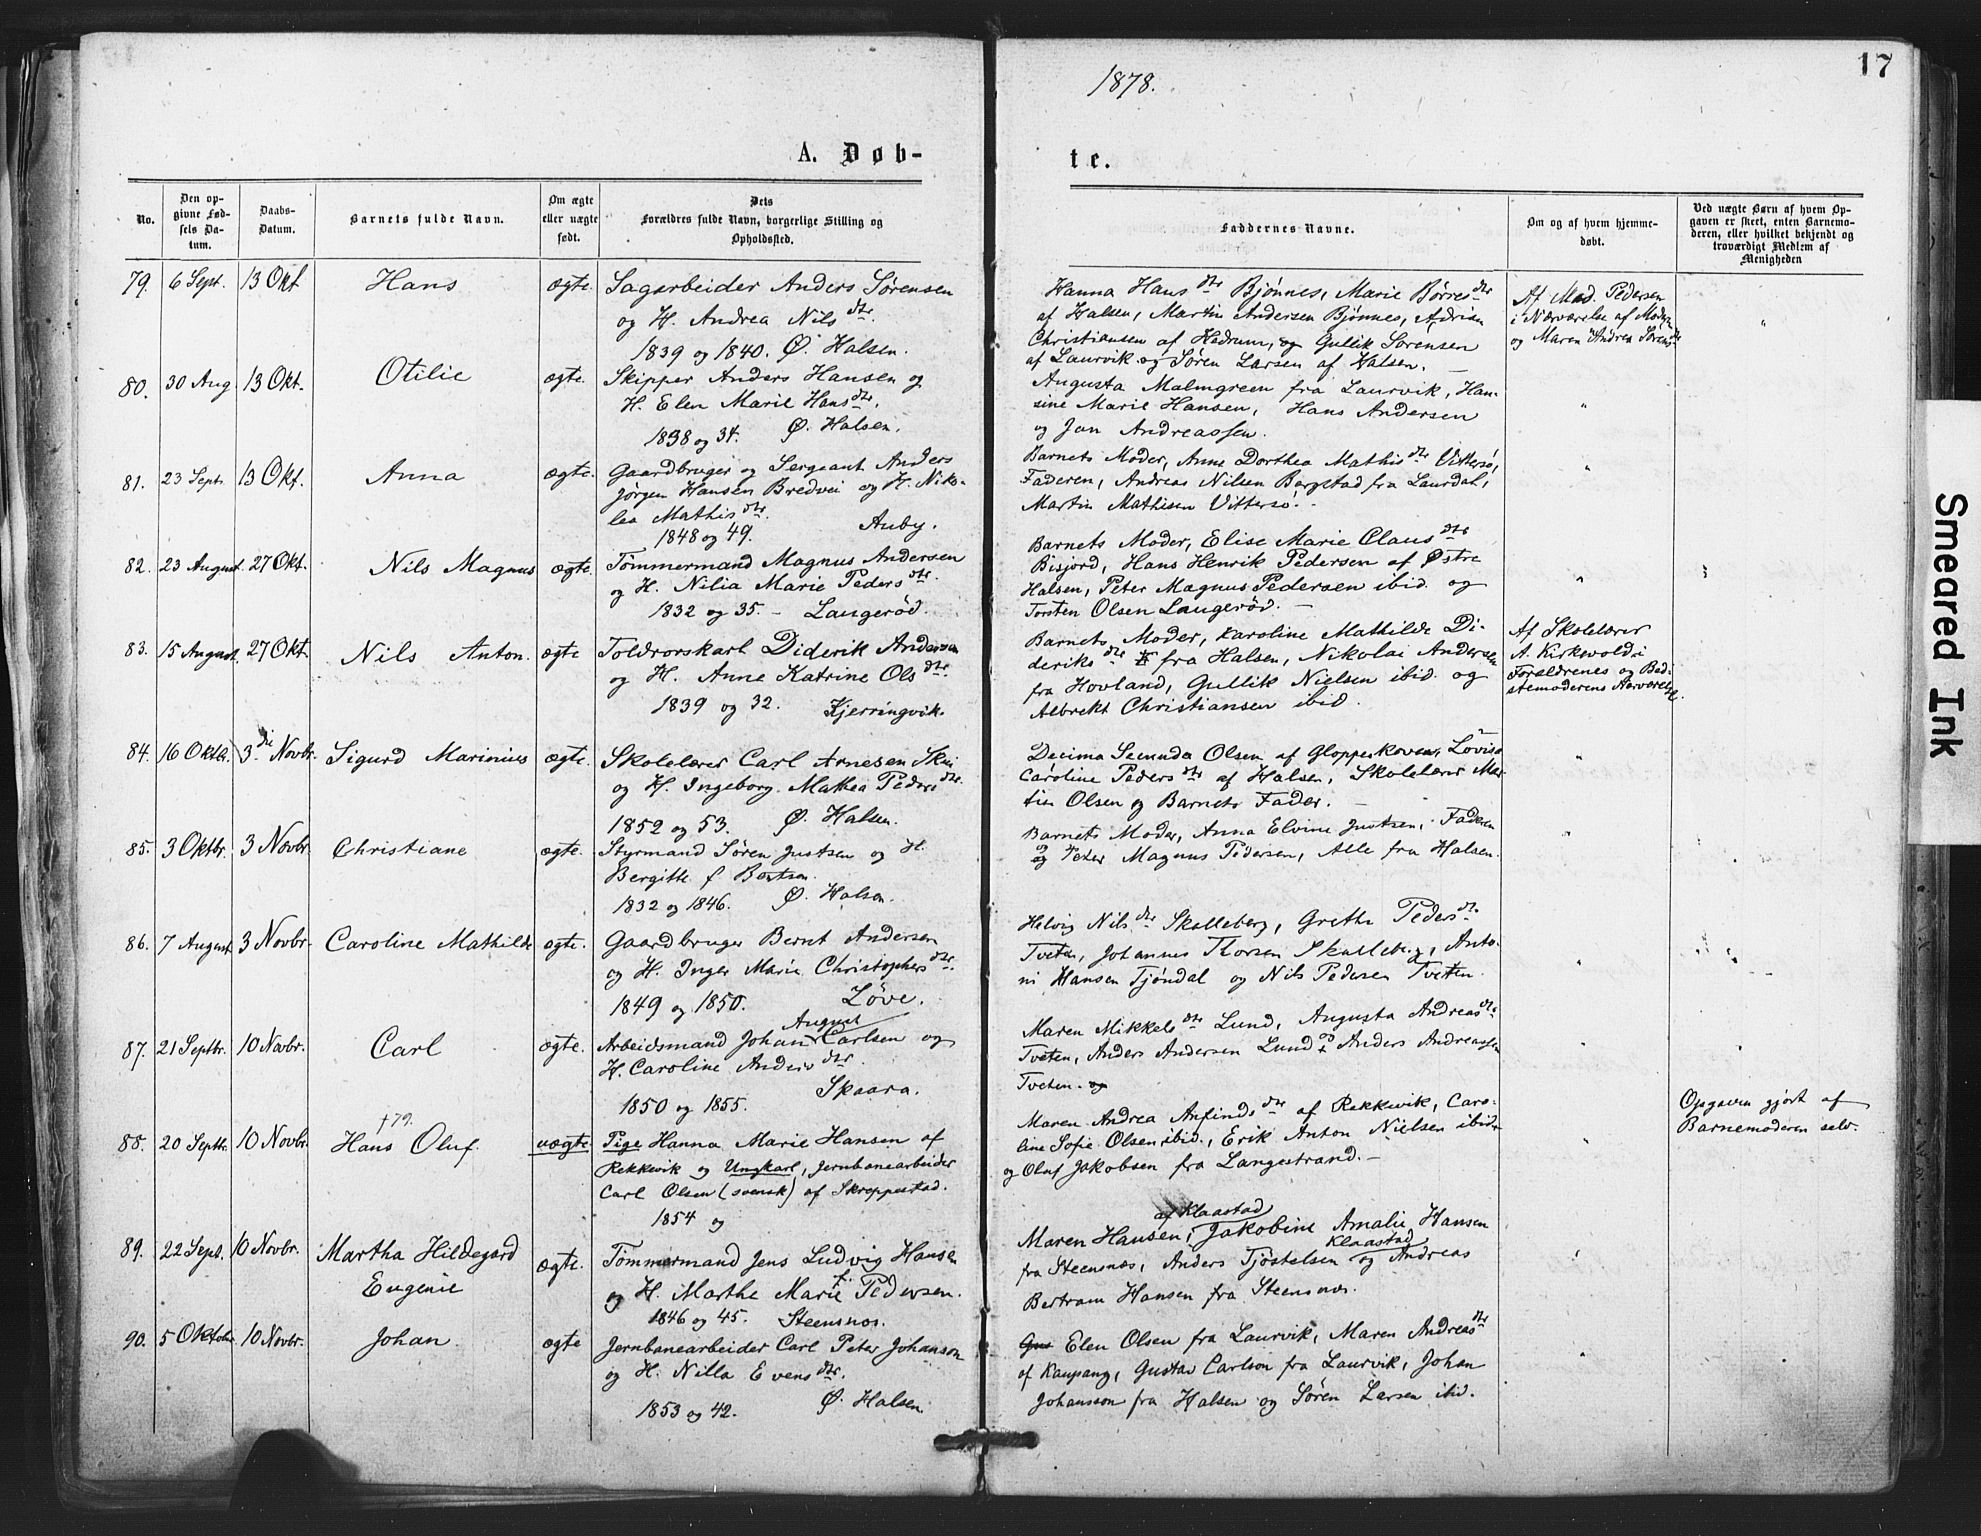 17
1878.
A. Døb-
te.
No.
Den op-
givne Fød-
sels Da-
tum.
Daabs-
Datum.
Barnets fulde Navn.
Om ægte
eller uægte
født.
Dets
Forældres fulde Navn, borgerlige Stilling og
Opholdssted.
Faddernes Navne.
Om og af hvem hjemme-
døbt.
Ved uægte Børn af hvem Op-
gaven er skeet, enten Barnemo-
deren, eller hvilket bekjendt og
troværdigt Medlem af
Menigheden
79. 6 Sept. 13 Okt Hans ægte. Sagarbeider Anders Sørensen
og H. Andrea Nilsdtr.
1839 og 1840. Ø. Halsen.
Hanna Hansdtr Bjønnes, Marie Børresdtr
af Halsen, Martin Andersen Bjønnes, Adrian
Christiansen af Hedrum, og Gullik Sørensen
af Laurvik og Søren Larsen af Halsen.
Af Mad. Pedersen
i Nærværelse af Moderen
og Maren Andrea Sørensdtr
80. 30 Aug. 13 Okt. Otilie ægte. Skipper Anders Hansen og
H. Elen Marie Hansdtr.
1838 og 34. Ø. Halsen.
Augusta Malmgreen fra Laurvik, Han-
sine Marie Hansen, Hans Andersen
og Jan Andreassen.
81. 23 Sept. 13 Okt. Anna ægte. Gaardbruger og Sergeant Anders
Jørgen Hansen Bredvei og H. Niko-
lea Mathisdtr.
1848 og 49. Auby.
Barnets Moder, Anne Dorthea Mathisdtr Vittersø,
Faderen, Andreas Nilsen Bergstad fra Laurdal,
Martin Mathisen Vittersø.
82. 23 August. 27 Okt. Nils Magnus ægte. Tømmermand Magnus Andersen
og H. Nilia Marie Pedersdtr.
1832 og 35. - Langerød.
Barnets Moder, Elise Marie Clausdtr
Bisjord, Hans Henrik Pedersen af Østre
Halsen, Peter Magnus Pedersen ibid. og
Torsten Olsen Langerød. -
83. 15 August. 27 Okt. Nils Anton. ægte Toldrorskarl Diderik Andersen
og H. Anne Katrine Olsdtr.
1839 og 32. Kjerringvik.
Barnets Moder, Karoline Mathilde Di-
deriksdtr fra Halsen, Nikolai Andersen
fra Hovland, Gullik Nielsen ibid. og
Albrekt Christiansen ibid.
Af Skolelærer
A. Kirkevold i
Forældrenes og Bed-
stemoderens Nærværelse.
84. 16 Oktbr. 3die Novbr. Sigurd Marinius ægte. Skolelærer Carl Arnesen Skui
og H. Ingeborg Mathea Pedersdtr.
1852 og 53. Ø. Halsen.
Decima Secunda Olsen af Glopperhoven, Lovise
Caroline Pedersdtr af Halsen, Skolelærer Mar-
tin Olsen og Barnets Fader. -
85. 3 Oktbr. 3 Novbr. Christiane ægte. Styrmand Søren Justsen og H.
Bergitte f. Bertsen.
1832 og 1846. Ø. Halsen.
Barnets Moder, Anna Elvine Justsen, Faderen
og Peter Magnus Pedersen, Alle fra Halsen.
86. 7 August. 3 Novbr. Caroline Mathilde ægte. Gaardbruger Bernt Andersen
og H. Inger Marie Christophersdtr.
1849 og 1850. Løve.
Helvig Nilsdtr Skalleberg, Grethe Pedersdtr
Tveten, Johannes Thorsen Skalleberg, Anto-
ni Hansen Tjøndal og Nils Pedersen Tveten.
87. 21 Septbr. 10 Novbr. Carl ægte. Arbeidsmand Johan August Carlsen og
H. Caroline Andersdtr.
1850 og 1855. Skaara.
Maren Mikkelsdtr Lund, Augusta Andreasdtr
Tveten, Anders Andersen Lund & Anders Andreassen
Tveten. og
88. 20 Septbr. 10 Novbr. †79. Hans Oluf. uægte Pige Hanna Marie Hansen af
Rekkevik og Ungkarl, Jernbanearbeider
Carl Olsen (svensk) af Skreppestad.
1854 og
Maren Andrea Anfindsdtr af Rekkevik, Caro-
line Sofie Olsen ibid., Erik Anton Nielsen ibid.
og Oluf Jakobsen fra Langestrand. -
Opgaven gjort af
Barnemoderen selv.
89. 22 Sept. 10 Novbr. Martha Hildegard
Eugenie ægte. Tømmermand Jens Ludvig Hansen
og H. Marthe Marie f. Pedersen.
1846 og 45. Steensnes.
Maren Hansen af Klaastad, Jakobine Amalie Hansen
fra Steensnæs, Anders Tjøstelsen Klaastad og Andreas
Bertram Hansen fra Steensnæs.
90. 5 Oktober 10 Novbr. Johan. ægte Jernbanearbeider Carl Peter Johanson
og H. Nilla Evensdtr.
1853 og 42. Ø. Halsen.
Elen Olsen fra Laurvik, Maren Andreasdtr
af Kaupang, Gustav Carlson fra Laurvik, Johan
Johansson fra Halsen og Søren Larsen ibid.
Smeared Ink